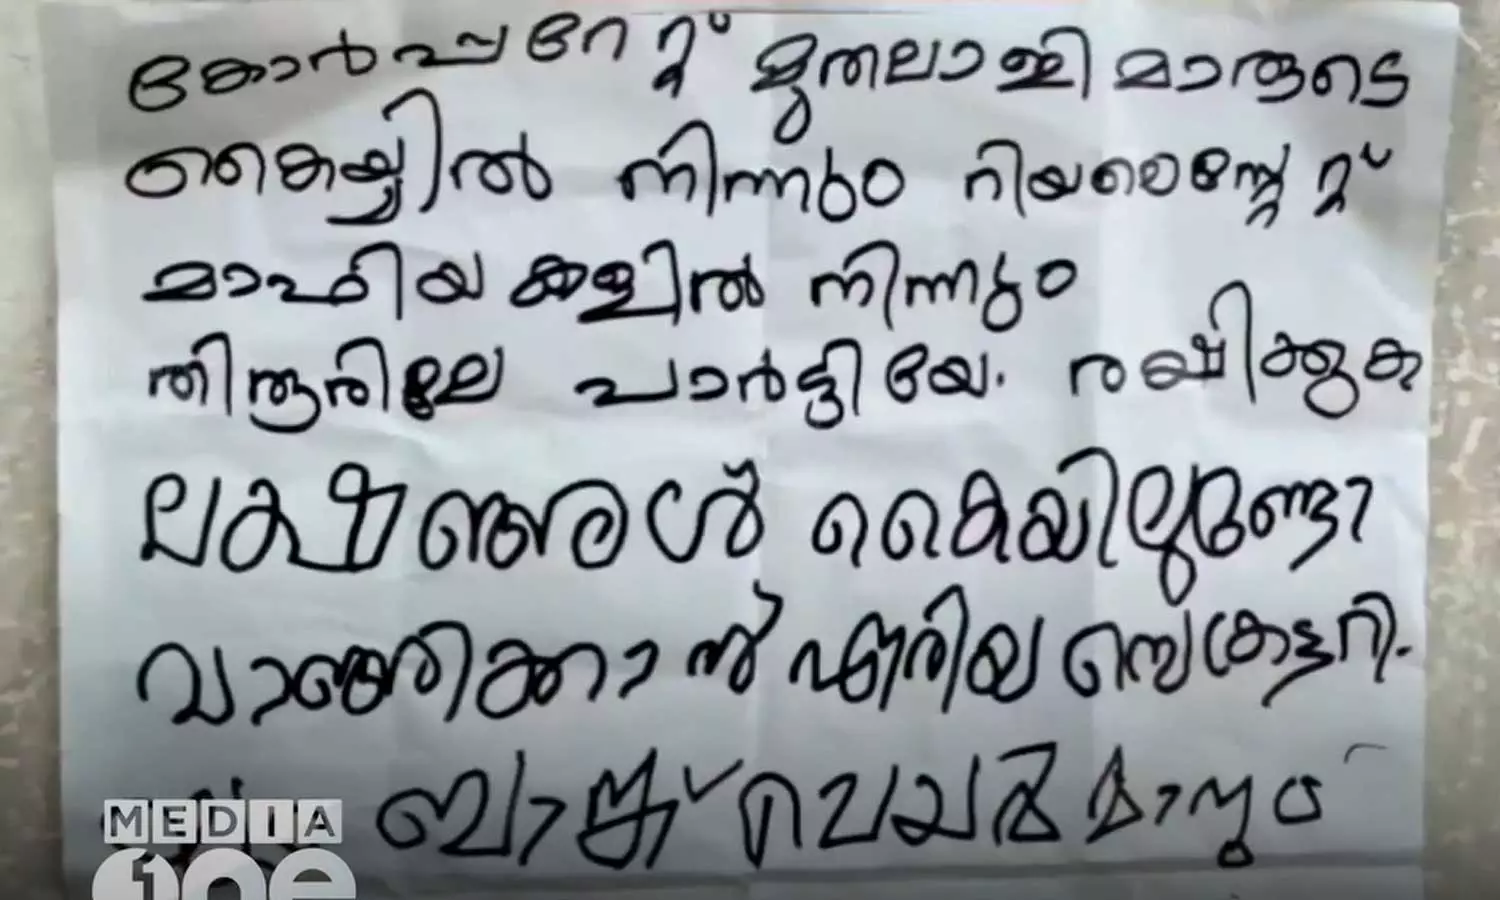 കോർപ്പറേറ്റ് മുതലാളി മാരുടെ
കൈയ്യിൽ നിന്നും റിയലെസ്റ്റേറ്റ്
മാഫിയ കളിൽ നിന്നും
തിരൂരിലേ പാർട്ടിയേ. രക്ഷിക്കുക
ലക്ഷങ്ങൾ കൈയിലുണ്ടോ
വാങ്ങിക്കാൻ ഏരിയ സെക്രട്ടറി.
ബാങ്ക് ചെയർമാനും
MEDIA
one